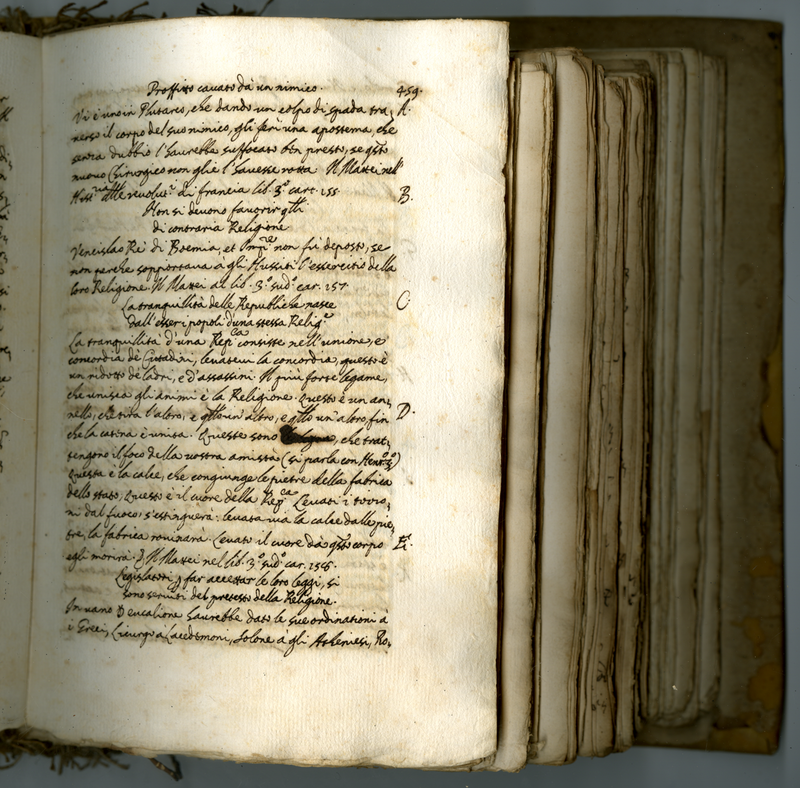 Proffitto cavato dà un nimico. 459.
Vi è uno in Plutarco, che dando un colpo di spada tra- A.
verso il corpo del suo nimico, gli ferì una apostema, che
senza dubbio l'haurebbe suffocato ben presto, se qsto
nuouo Chirurgico non glie l'hauesse rotta. Il Mattei nell'
Hist.ria delle reuolut.i di francia lib. 3.o cart. 155. B.
Non si deuono fauorir qlli
di contraria Religione
Venceislao Rè di Boemia, et Imp.re non fù deposto, se
non perche sopportaua à gli Hussiti l'essercitio della
loro Religione. Il Mattei al lib. 3.o sud.o car. 157.
La tranquillità delle Republiche nasce C.
dall'esser i popoli d'una stessa Relig.e
La tranquillità d'una Rep.ca consiste nell'unione, e
concordia de Cittadini, leuateui la concordia, questo è
un ridotto de ladri, e d'assassini. Il più forte legame,
che unisca gli animi è la Religione. Questo è un an-
nello, che tira l'altro, e qllo un'altro, e qllo un'altro fin D.
che la catina è unita. Queste sono , che trat-
tengono il foco della uostra amistà (si parla con Henr.o 3.o)
Questa è la calce, che congiunge le pietre della fabrica
dello stato, Questo è il cuore della Rep.ca Leuati i tizzo-
ni dal fuoco, s'estinguerà: leuata uia la calce dalle pie-
tre, la fabrica rouinarà. Leuato il cuore da qsto corpo E.
egli morirà. Il Mattei nel lib. 3.o sud.o car. 155.
Legislatori p far accettar le loro leggi, si
sono seruiti del pretesto della Religione.
In uano Deucalione haurebbe dato le sue ordinationi à
i Greci, Licurgo à Lacedemoni, Solone à gli Atheniesi, Ro-